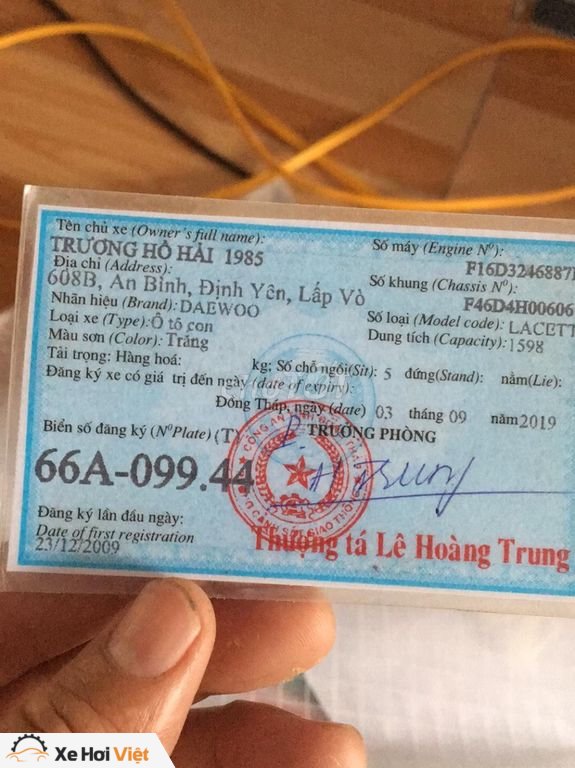 Tên chủ xe (Owner's full name):
TRƯƠNG HỒ HẢI 1985
Địa chỉ (Address):
608B, An Bình, Định Yên, Lấp Vò
Nhãn hiệu (Brand): DAEWOO
Loại xe (Type): Ô tô con
Màu sơn (Color): Trắng
Tải trọng: Hàng hoá: kg; Số chỗ ngồi(Sit): 5 đứng(Stand): nằm(Lie):
Số máy (Engine Nº):
F16D3246887
Số khung (Chassis Nº):
F46D4H00606
Số loại (Model code): LACETT
Dung tích (Capacity): 1598
Đăng ký xe có giá trị đến ngày (date of expiry):
Đồng Tháp, ngày (date) 03 tháng 09 năm 2019
Biển số đăng ký (NºPlate) (T)
TRƯỞNG PHÒNG
66A-099.44
Đăng ký lần đầu ngày:
Date of first registration
23/12/2009
Thượng tá Lê Hoàng Trung
Xe Hơi Việt